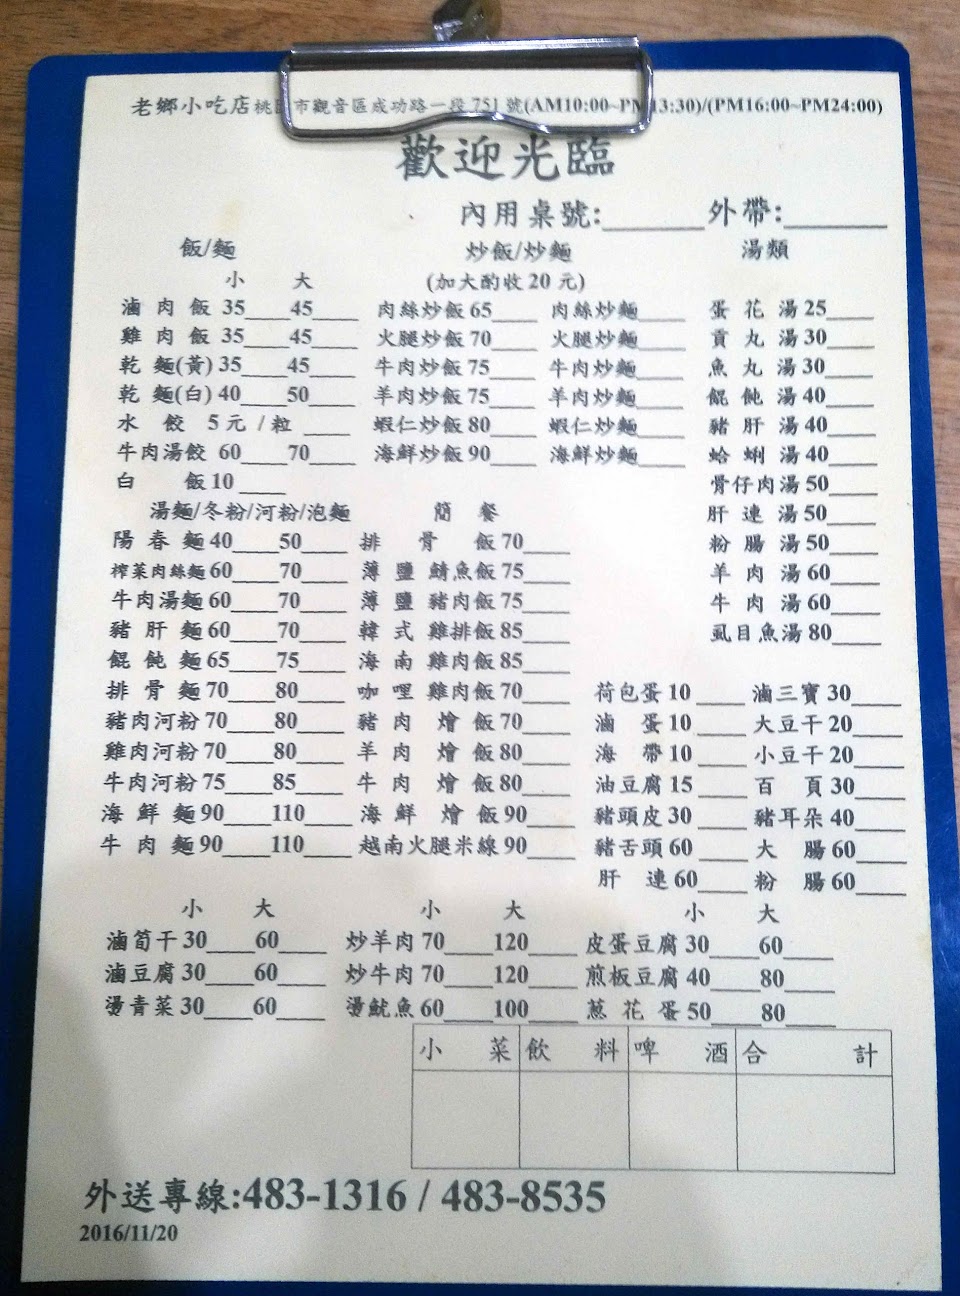 老鄉小吃店桃園市觀音區成功路一段 751 號(AM10:00~PM13:30)/(PM16:00~PM24:00)
歡迎光臨
內用桌號:______ 外帶:______
飯/麵
小 大
滷肉飯 35____45____
雞肉飯 35____45____
乾麵(黃) 35____45____
乾麵(白) 40____50____
水餃 5元/粒 ____
牛肉湯餃 60____70____
白飯10 ____
炒飯/炒麵
(加大酌收 20 元)
肉絲炒飯 65____ 肉絲炒麵____
火腿炒飯 70____ 火腿炒麵____
牛肉炒飯 75____ 牛肉炒麵____
羊肉炒飯 75____ 羊肉炒麵____
蝦仁炒飯 80____ 蝦仁炒麵____
海鮮炒飯 90____ 海鮮炒麵____
湯類
蛋花湯 25____
貢丸湯 30____
魚丸湯 30____
餛飩湯 40____
豬肝湯 40____
蛤蜊湯 40____
骨仔肉湯 50____
肝連湯 50____
粉腸湯 50____
羊肉湯 60____
牛肉湯 60____
虱目魚湯 80____
湯麵/冬粉/河粉/泡麵
陽春麵 40____50____
榨菜肉絲麵 60____70____
牛肉湯麵 60____70____
豬肝麵 60____70____
餛飩麵 65____75____
排骨麵 70____80____
豬肉河粉 70____80____
雞肉河粉 70____80____
牛肉河粉 75____85____
海鮮麵 90____110____
牛肉麵 90____110____
簡餐
排骨飯 70____
薄鹽鯖魚飯 75____
薄鹽豬肉飯 75____
韓式雞排飯 85____
海南雞肉飯 85____
咖哩雞肉飯 70____
豬肉燴飯 70____
羊肉燴飯 80____
牛肉燴飯 80____
海鮮燴飯 90____
越南火腿米線 90____
荷包蛋 10 ____ 滷三寶 30____
滷蛋 10____ 大豆干 20____
海帶 10____ 小豆干 20____
油豆腐 15 ____ 百頁 30____
豬頭皮 30 ____ 豬耳朵 40____
豬舌頭 60 ____ 大腸 60____
肝連 60____ 粉腸 60____
小 大 小 大 小 大
滷筍干 30____60____ 炒羊肉 70____120____ 皮蛋豆腐 30____60____
滷豆腐 30____60____ 炒牛肉 70____120____ 煎板豆腐 40____80____
燙青菜 30____60____ 燙魷魚 60____100____ 蔥花蛋 50____80____
小菜 飲料 啤酒 合計
外送專線:483-1316 / 483-8535
2016/11/20